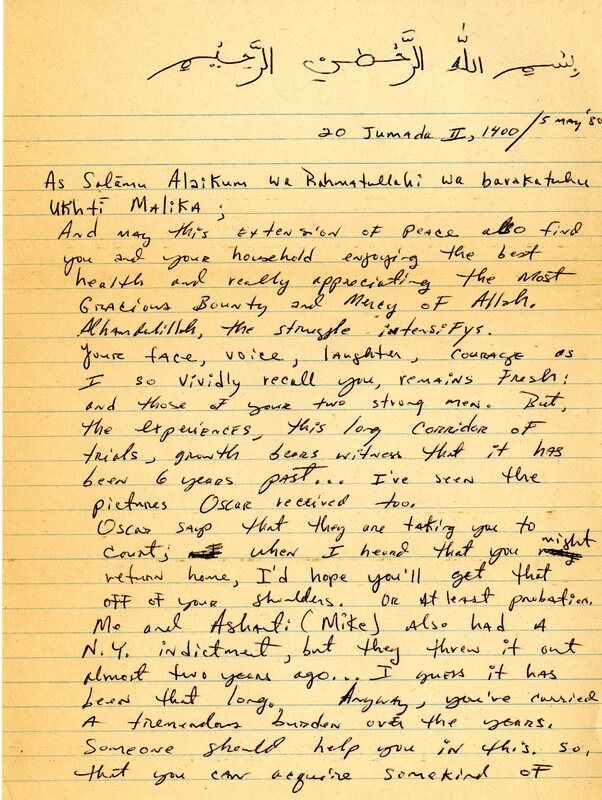 بسم الله الرحمن الرحيم
20 Jumada II, 1400 / 5 May '80
As Salāmu Alaikum wa Rahmatullahi wa barakatuhu
Ukhtī Malika;
And may this extension of peace also find
you and your household enjoying the best
health and really appreciating the Most
Gracious Bounty and Mercy of Allah.
Alhamdulillah, the struggle intensifys.
Youre face, voice, laughter, courage as
I so vividly recall you, remains fresh:
and those of your two strong men. But,
the experiences, this long corridor of
trials, growth bears witness that it has
been 6 years past... I've seen the
pictures Oscar received too.
Oscar says that they are taking you to
court; when I heard that you might
return home, I'd hope you'll get that
off of your shoulders. Or at least probation.
Me and Ashanti (Mike) also had a
N.Y. indictment, but they threw it out
almost two years ago... I guess it has
been that long. Anyway, you've carried
a tremendous burden over the years.
Someone should help you in this. So,
that you can acquire somekind of